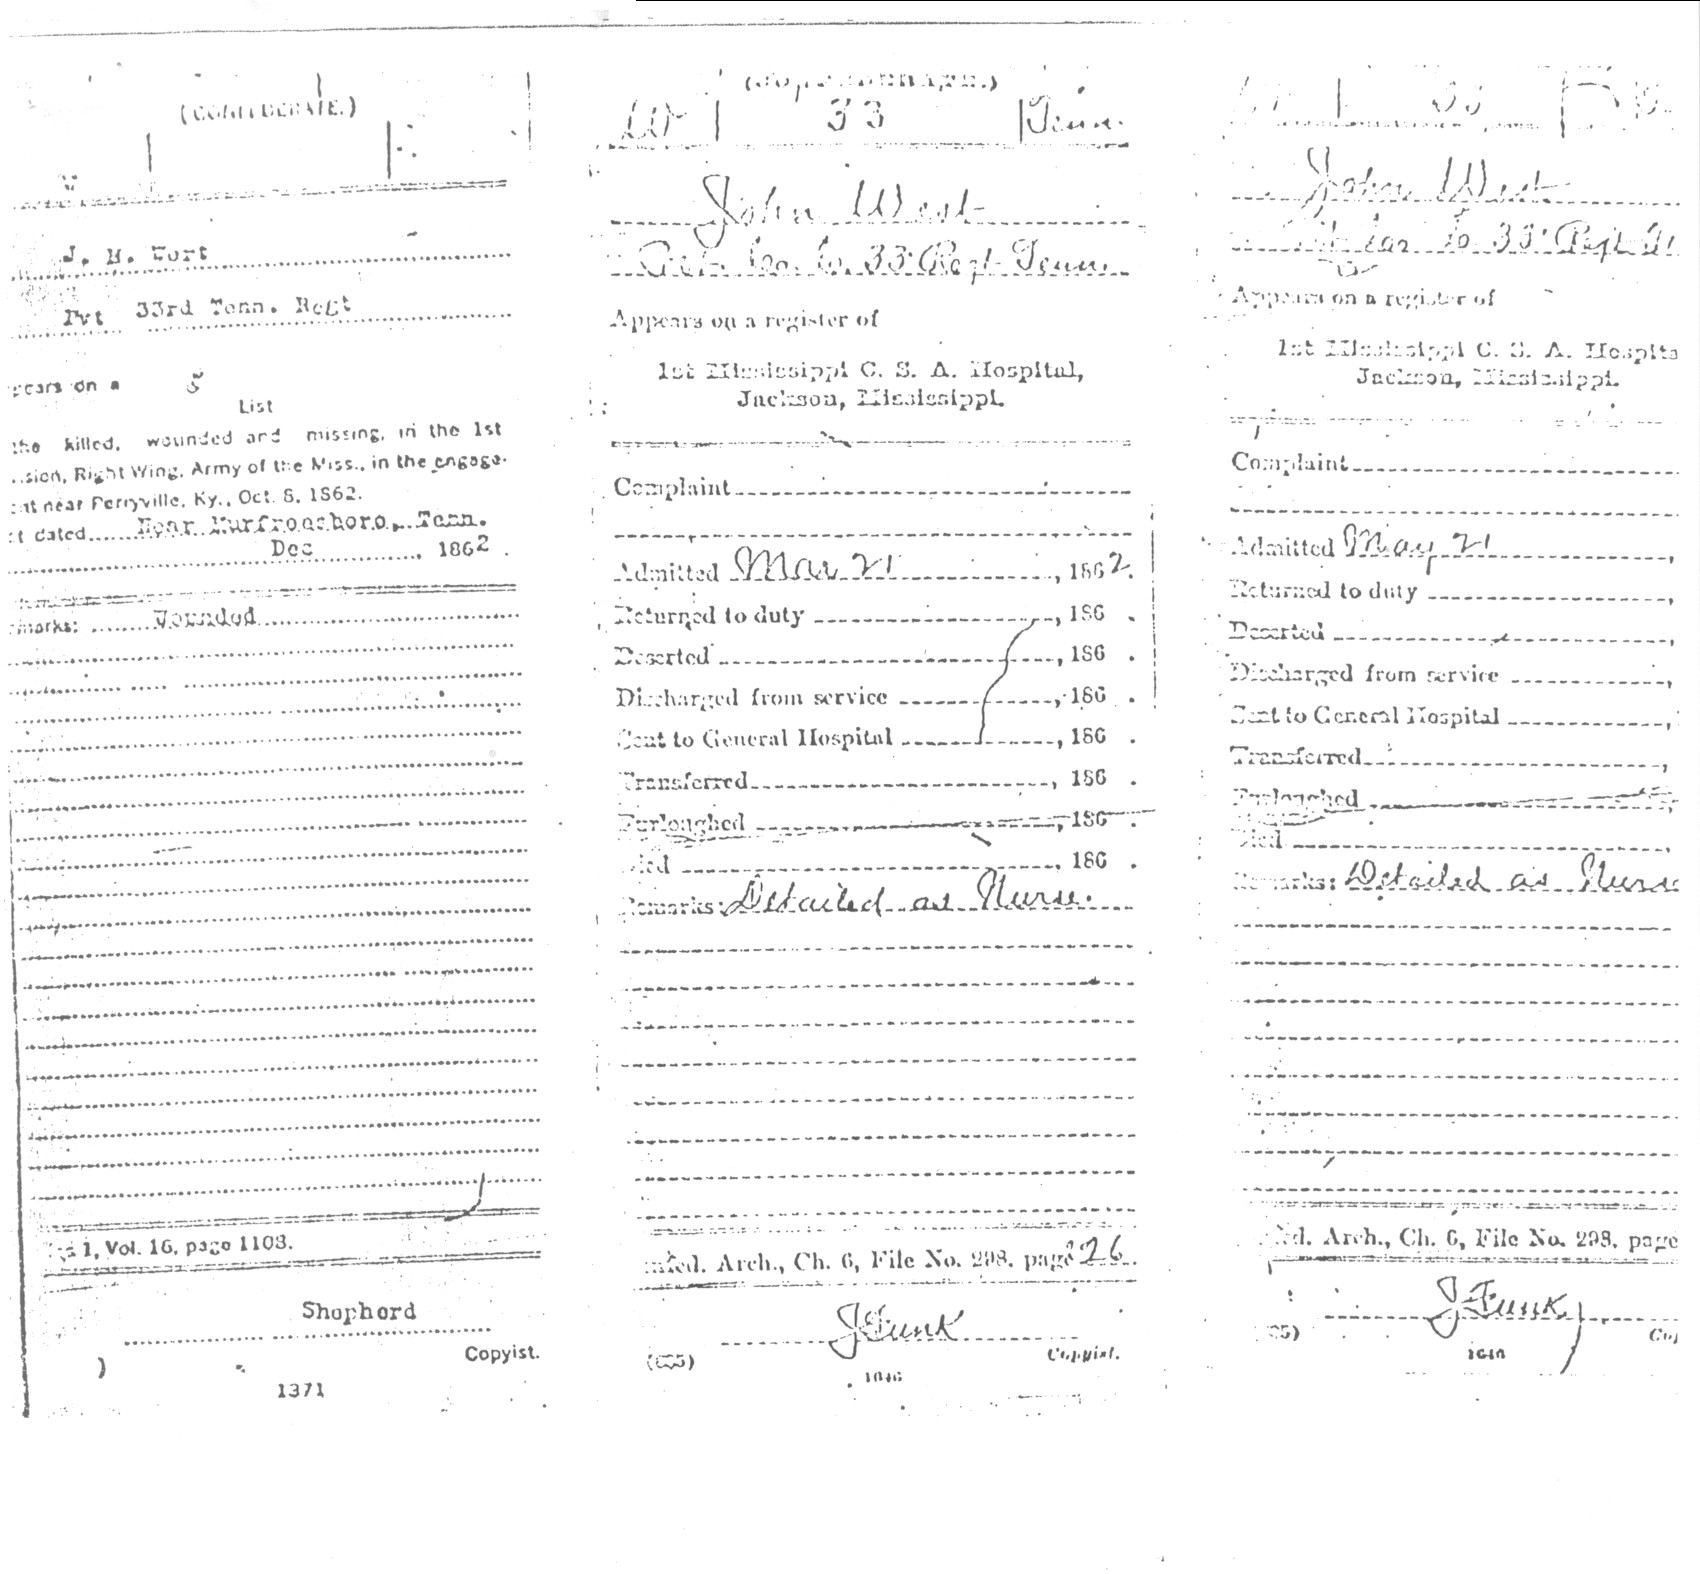 (CONFEDERATE.)
J. H. West
Pvt 33rd Tenn. Regt
pears on a
List
the killed, wounded and missing, in the 1st
ision, Right Wing, Army of the Miss., in the engage-
ent near Perryville, Ky., Oct. 8, 1862.
t dated Near Murfreesboro, Tenn.
Dec , 1862.
marks: Wounded
1, Vol. 16, page 1108.
Shepherd
Copyist.
)
1371
(CONFEDERATE.)
W 33 Tenn.
John West
Co. 33 Regt Tenn.
Appears on a register of
1st Mississippi C. S. A. Hospital,
Jackson, Mississippi.
Complaint
Admitted Mar 21, 1862.
Returned to duty , 186 .
Deserted , 186 .
Discharged from service , 186 .
Sent to General Hospital , 186 .
Transferred , 186 .
Furloughed , 186 .
Died , 186 .
Remarks: Detailed as Nurse.
nfed. Arch., Ch. 6, File No. 298, page 26
J Funk
Copyist.
(635)
1646
33
John West
33 Regt
Appears on a register of
1st Mississippi C. S. A. Hospita
Jackson, Mississippi.
Complaint
Admitted May 21,
Returned to duty ,
Deserted ,
Discharged from service ,
Sent to General Hospital ,
Transferred ,
Furloughed ,
Died ,
Remarks: Detailed as Nurse
ed. Arch., Ch. 6, File No. 298, page
J Funk
35) Cop
1646